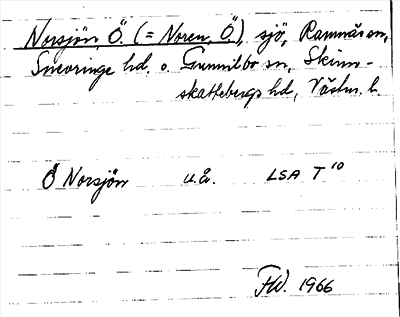 Norsjön, Ö. (= Noren, Ö.), sjö, Ramnäs sn,
Snevringe hd. o. Gunnilbo sn, Skinn-
skattebergs hd, Västm. l.
Ö Norsjön u.å. LSA T 10
FW. 1966